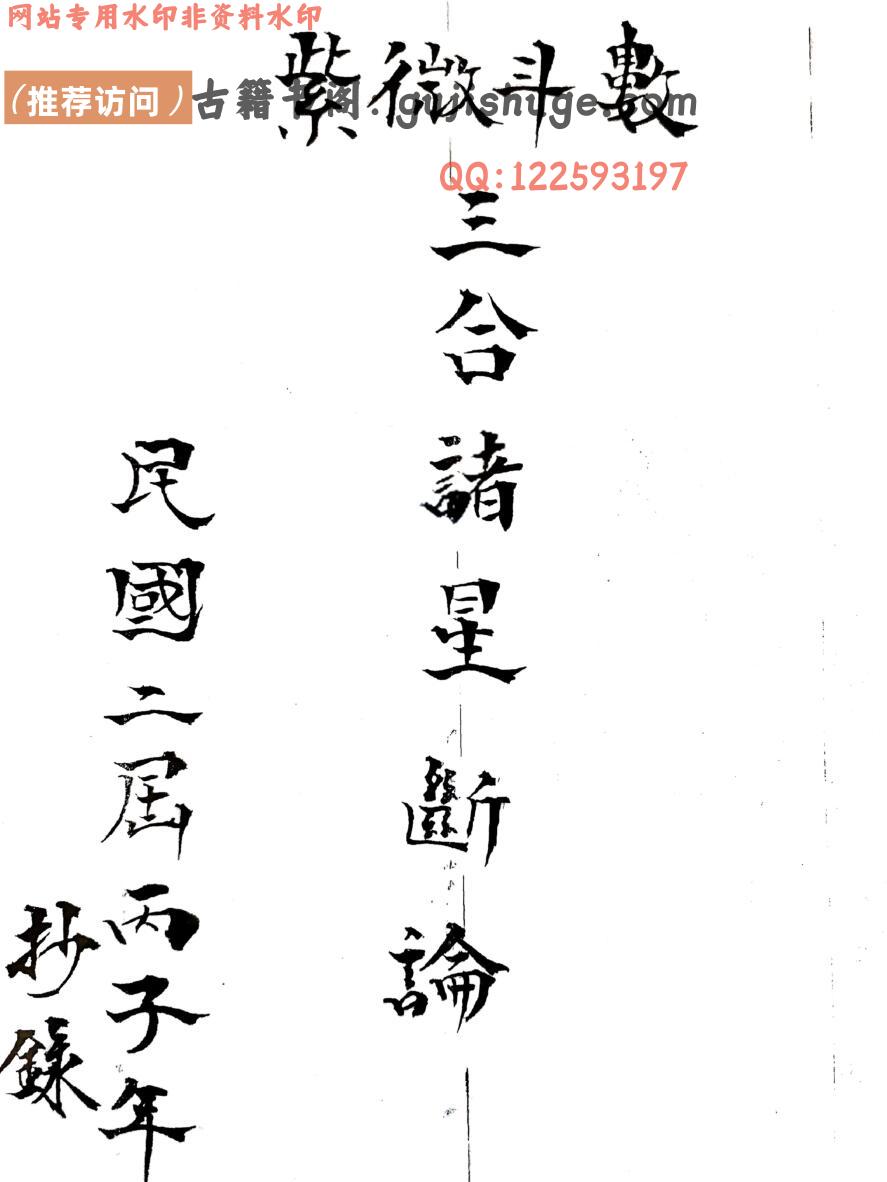 网站专用水印非资料水印
（推荐访问）古籍书阁.gujishuge.com
QQ:122593197
紫微斗數
三合諸星斷論
民國二屆丙子年
抄錄